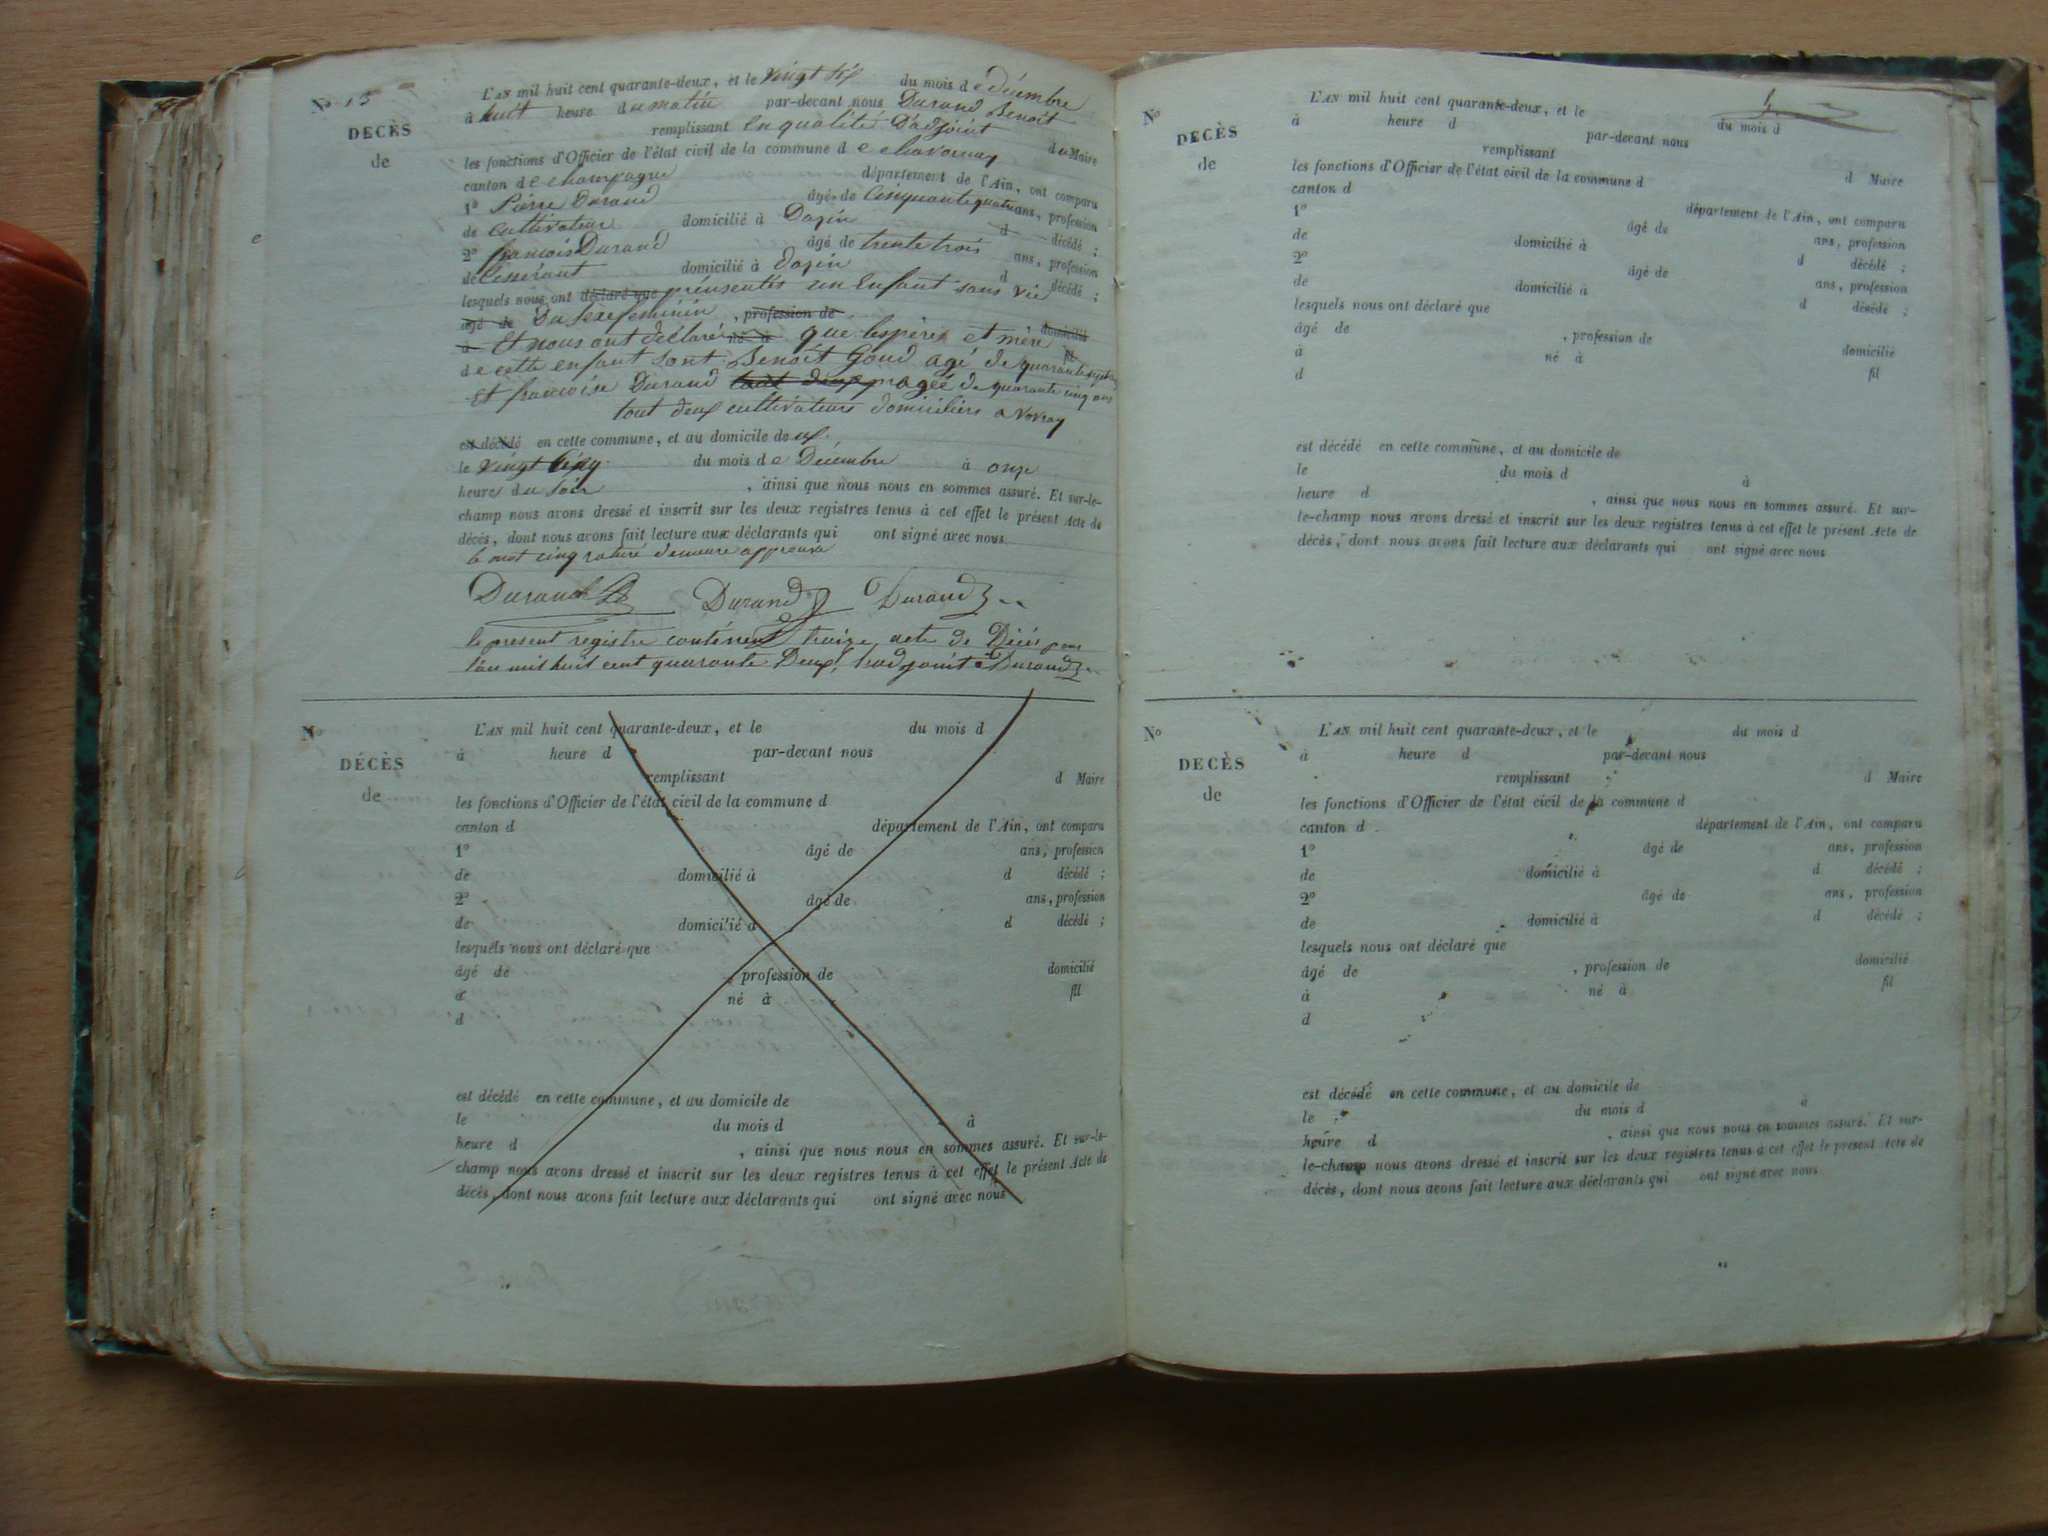 No 13
DECÈS
de
L'AN mil huit cent quarante-deux, et le vingt six du mois de décembre
à huit heure du matin par-devant nous Durand Benoit
remplissant en qualité D'adjoint du Maire
les fonctions d'Officier de l'état civil de la commune de chavornay
canton de champagne département de l'Ain, ont comparu
1º Pierre Durand âgé de cinquante quatre ans, profession
de cultivateur domicilié à Dazin d décédé ;
2º françois Durand âgé de trente trois ans, profession
de tisserant domicilié à dazin d décédé ;
lesquels nous ont déclaré que présentés un enfant sans vie
âgé de Du sexe feminin , profession de domicilié
à Et nous ont déclaré né à que les père et mère fil
de cette enfant sont Benoit Goud agé de quarante
et francoise Durand tout deux agée de quarante cinq ans
tout deux cultivateurs domiciliers a vovray
est décédé en cette commune, et au domicile de
le vingt cinq du mois de Décembre à onze
heures du soir , ainsi que nous nous en sommes assuré. Et sur-le-
champ nous avons dressé et inscrit sur les deux registres tenus à cet effet le présent Acte de
décès, dont nous avons fait lecture aux déclarants qui ont signé avec nous
le mot cinq raturé demeure approuvé
Durand Durand Durand
le present registre contenent traize acte de Décès pour
l'an mil huit cent quarante Deux, l'adjoint Durand
No
DÉCÈS
de
L'AN mil huit cent quarante-deux, et le du mois d
à heure d par-devant nous
remplissant d Maire
les fonctions d'Officier de l'état civil de la commune d
canton d département de l'Ain, ont comparu
1º âgé de ans, profession
de domicilié à d décédé ;
2º âgé de ans, profession
de domicilié à d décédé ;
lesquels nous ont déclaré que
âgé de , profession de domicilié
à né à fil
d
est décédé en cette commune, et au domicile de
le du mois d à
heure d , ainsi que nous nous en sommes assuré. Et sur-le-
champ nous avons dressé et inscrit sur les deux registres tenus à cet effet le présent Acte de
décès, dont nous avons fait lecture aux déclarants qui ont signé avec nous
No
DECÈS
de
L'AN mil huit cent quarante-deux, et le du mois d
à heure d par-devant nous
remplissant d Maire
les fonctions d'Officier de l'état civil de la commune d
canton d département de l'Ain, ont comparu
1º âgé de ans, profession
de domicilié à d décédé ;
2º âgé de ans, profession
de domicilié à d décédé ;
lesquels nous ont déclaré que
âgé de , profession de domicilié
à né à fil
d
est décédé en cette commune, et au domicile de
le du mois d à
heure d , ainsi que nous nous en sommes assuré. Et sur-
le-champ nous avons dressé et inscrit sur les deux registres tenus à cet effet le présent Acte de
décès, dont nous avons fait lecture aux déclarants qui ont signé avec nous
No
DECÈS
de
L'AN mil huit cent quarante-deux, et le du mois d
à heure d par-devant nous
remplissant d Maire
les fonctions d'Officier de l'état civil de la commune d
canton d département de l'Ain, ont comparu
1º âgé de ans, profession
de domicilié à d décédé ;
2º âgé de ans, profession
de domicilié à d décédé ;
lesquels nous ont déclaré que
âgé de , profession de domicilié
à né à fil
d
est décédé en cette commune, et au domicile de
le du mois d à
heure d , ainsi que nous nous en sommes assuré. Et sur-
le-champ nous avons dressé et inscrit sur les deux registres tenus à cet effet le présent Acte de
décès, dont nous avons fait lecture aux déclarants qui ont signé avec nous